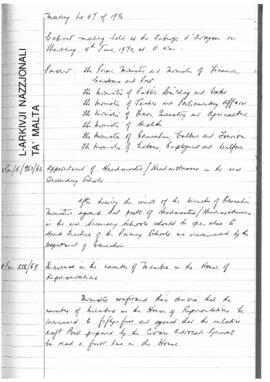 Meeting No 47 of 1970
Cabinet meeting held at the Auberge d'Aragon on
Thursday, 4th June, 1970, at 11 a.m.
L-ARKIVJI NAZZJONALI
TA' MALTA
Present: The Prime Minister and Minister of Finance,
Customs and Port
The Minister of Public Building and Works
The Minister of Justice and Parliamentary Affairs
The Minister of Trade, Industry and Agriculture
The Minister of Health
The Minister of Education, Culture and Tourism
The Minister of Labour, Employment and Welfare
Appointment of Headmasters/Headmistresses in the new
Secondary Schools
After hearing the views of the Minister of Education
Ministers agreed that posts of Headmasters/Headmistresses
in the new Secondary Schools should be open also to
Head Teachers of the Primary Schools as recommended by the
Department of Education
Increase in the number of Members in the House of
Representatives
Ministers confirmed their decision that the
number of Members in the House of Representatives be
increased to fifty five and agreed that the relative
draft Bill prepared by the Crown Advocate General
be read a first time in the House.